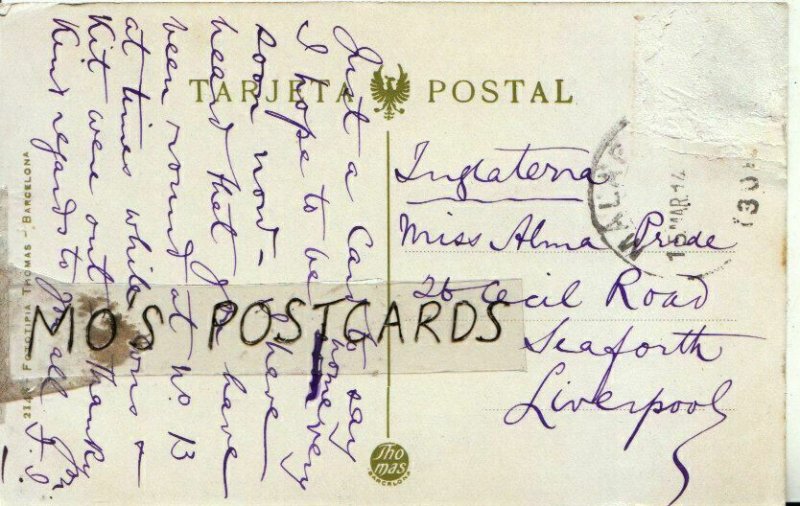 TARJETA POSTAL
Just a Card to say
I hope to be home very
soon now - I have
heard that you have
been round at No. 13
at times while Mons &
Kit were out. Thanks
Kind regards to you all
Inglaterra
Miss Alma Prode
26 Cecil Road
Seaforth
Liverpool
MALAG
MAR 14
MO'S POSTCARDS
FOTOTIPIA THOMAS - BARCELONA
Thomas
BARCELONA